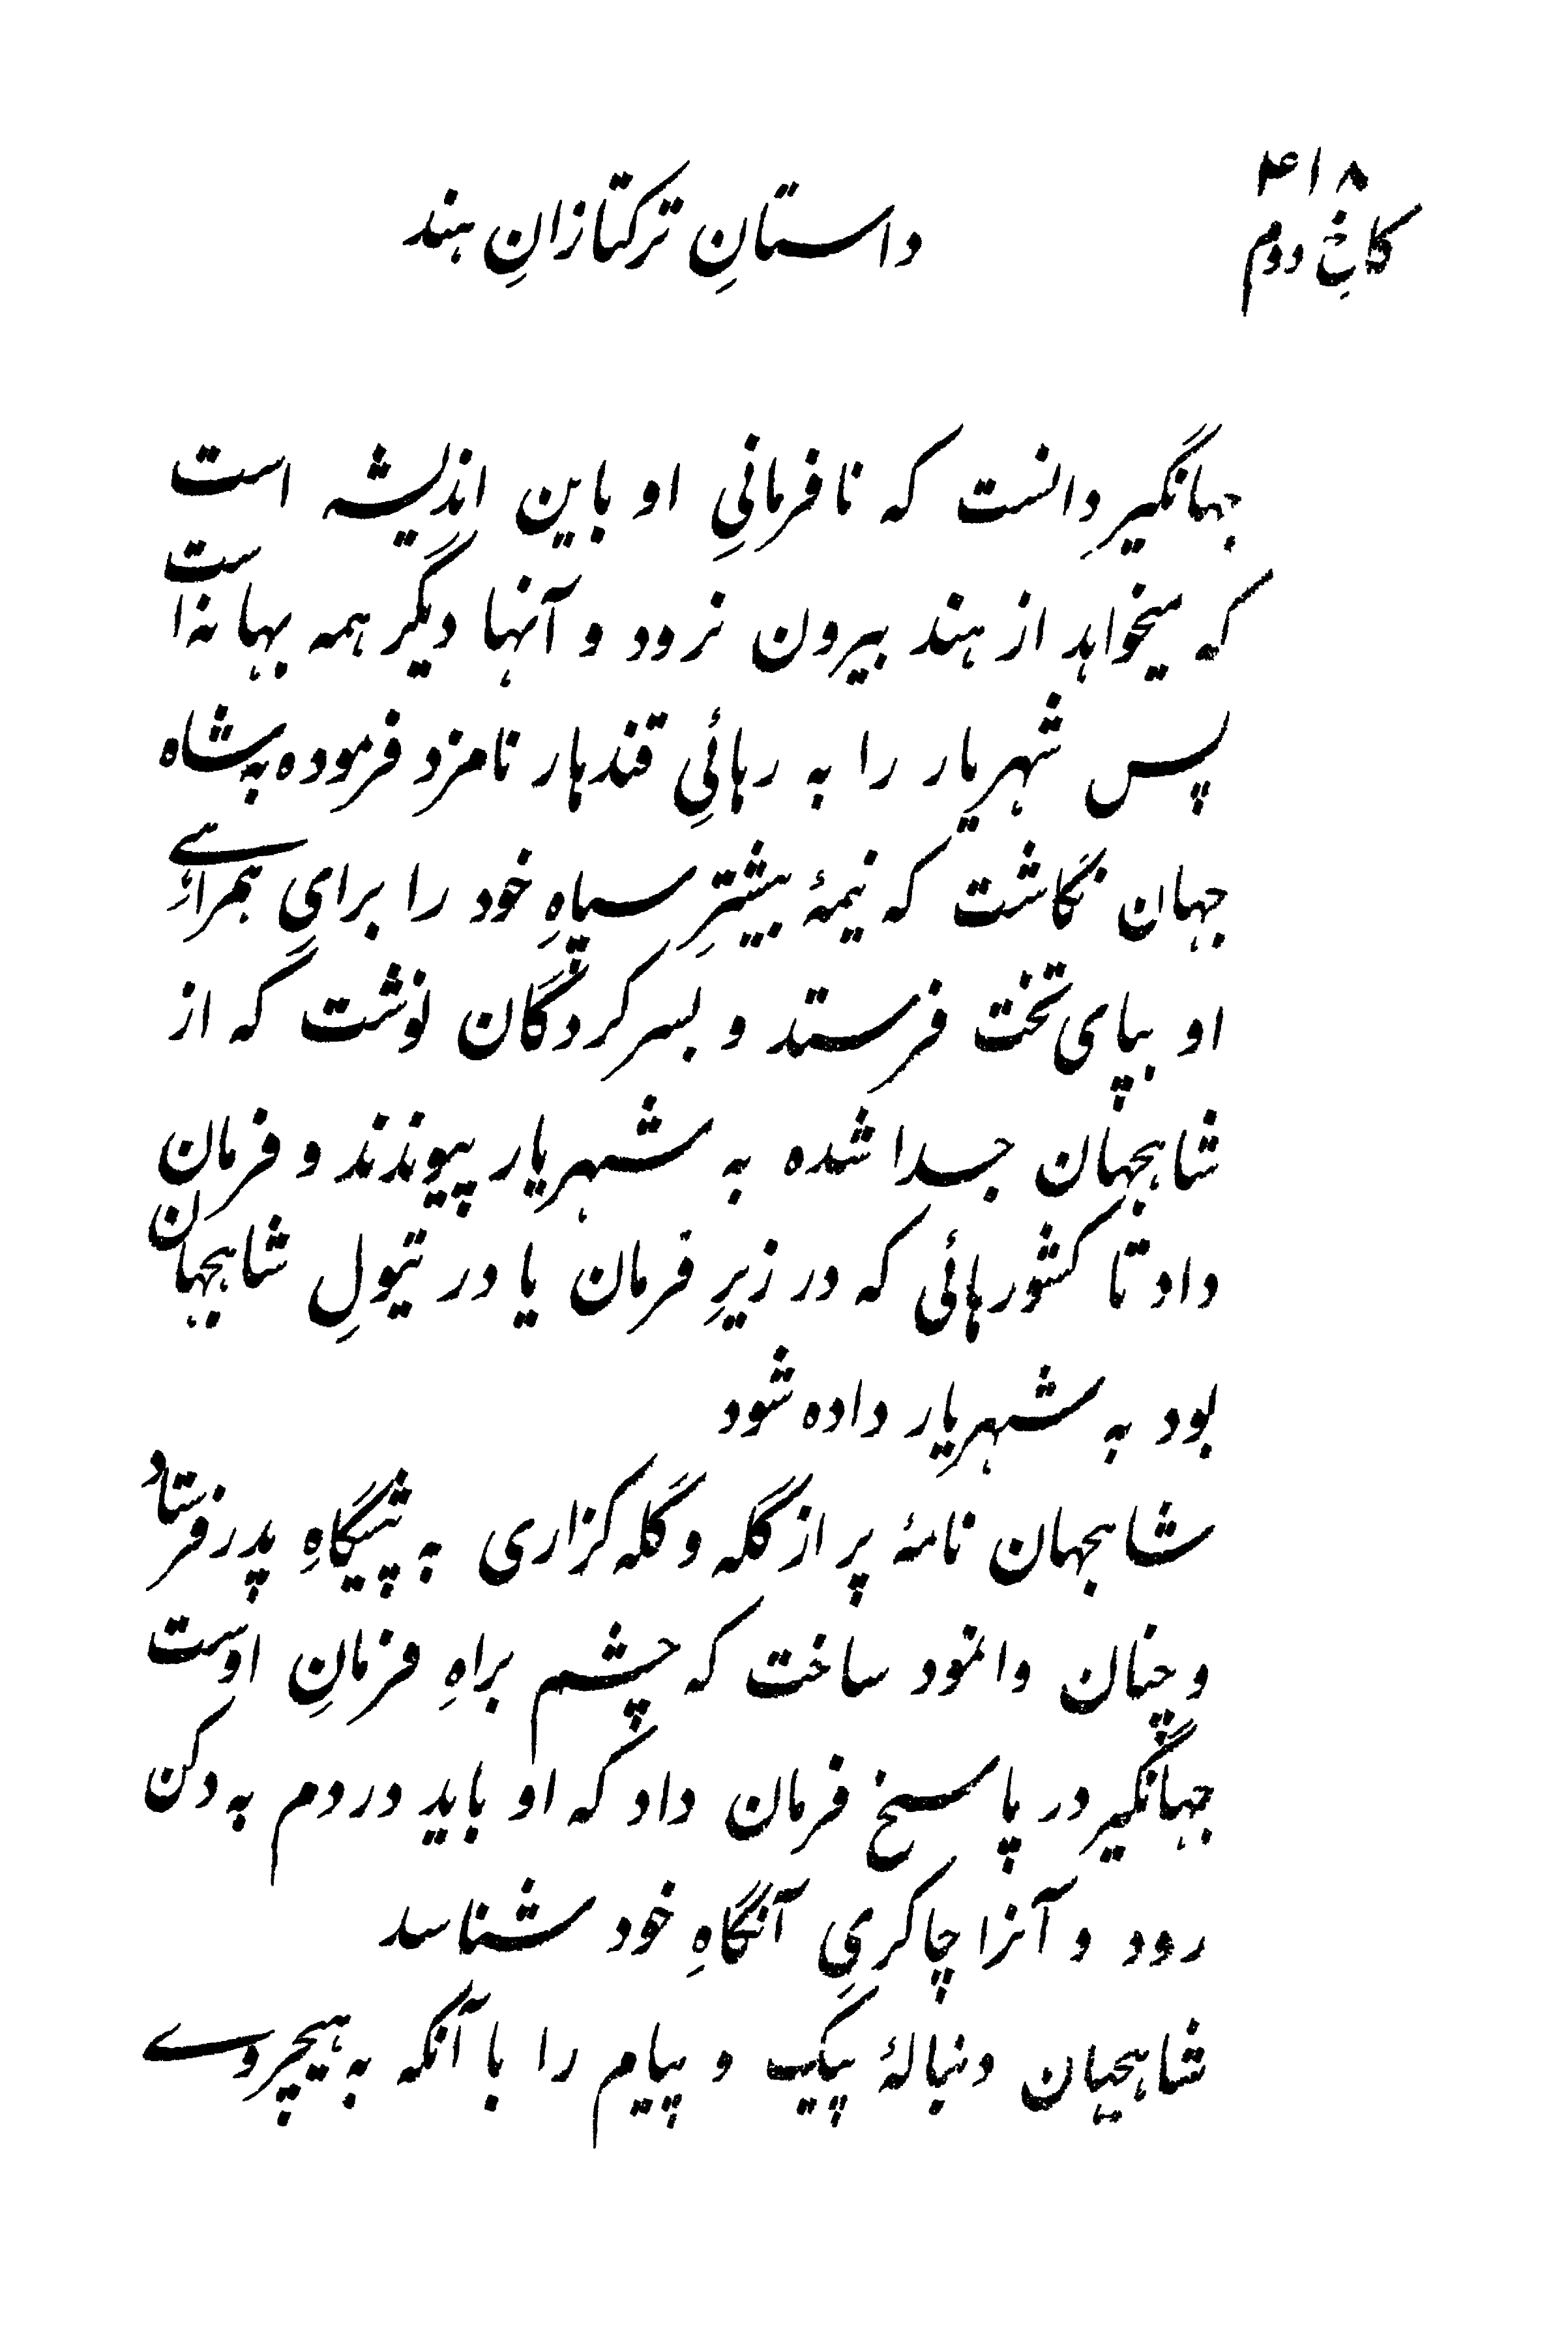 ۴۱۸
کاخِ دوم
داستانِ ترکتازانِ هند
جهانگیر دانست که نافرمانیِ او باین اندیشه است
که میخواهد از هند بیرون نرود و آنها دیگر همه بهانه است
پس شهریار را به رهائیِ قندهار نامزد فرموده به شاه
جهان نگاشت که نیمهٔ بیشترِ سپاهِ خود را برای همراهیِ
او بپای تخت فرستد و بسرکردگان نوشت که از
شاهجهان جدا شده به شهریار پیوندند و فرمان
داد تا کشورهائی که در زیرِ فرمان یا در تیولِ شاهجهان
بود به شهریار داده شود
شاهجهان نامهٔ پر از گله و گله گزاری به پیشگاهِ پدر فرستاد
و چنان وانمود ساخت که چشم براهِ فرمانِ اوست
جهانگیر در پاسخ فرمان داد که او باید در دم به دکن
رود و آنرا چاکریِ آنگاهِ خود شناسد
شاهجهان دنبالهٔ پیک و پیام را با آنکه به هیچروے